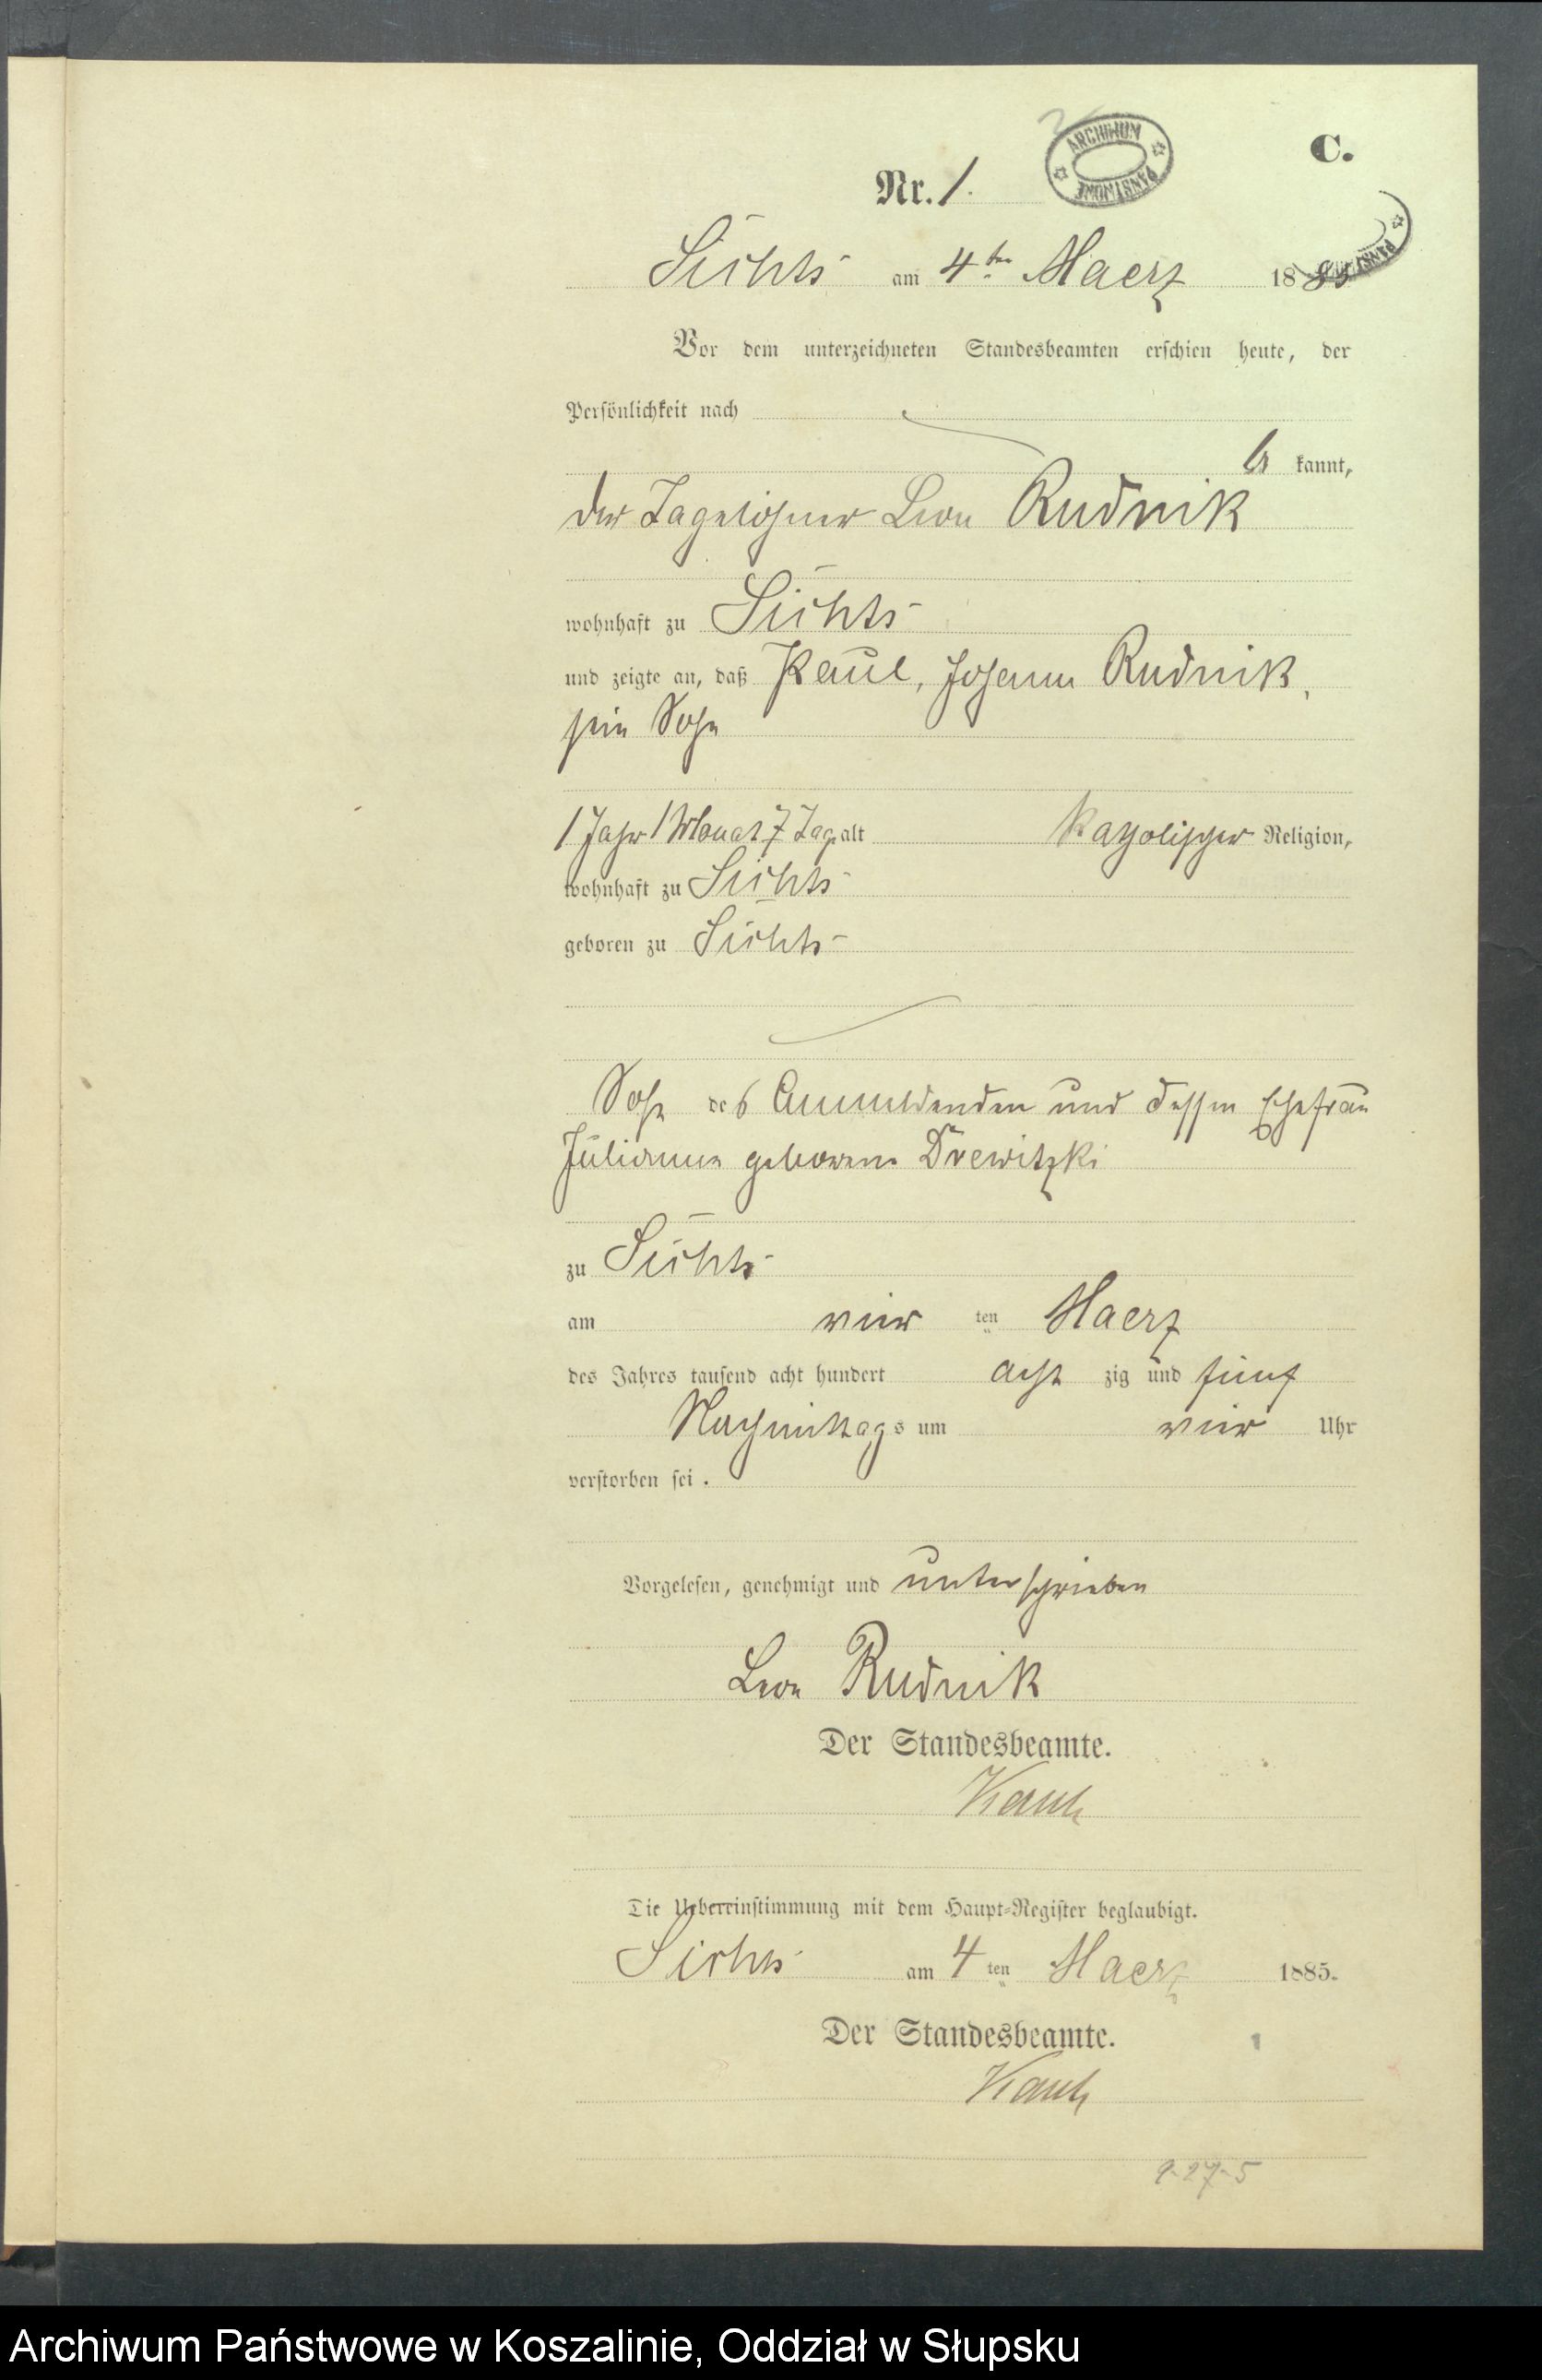 C.
Nr. 1.
ARCHIWUM PAŃSTWOWE
Sichts am 4ten Maerz 1885
Vor dem unterzeichneten Standesbeamten erschien heute, der
Persönlichkeit nach
be kannt,
der Tagelöhner Leon Rudnik
wohnhaft zu Sichts
und zeigte an, daß Paul, Johann Rudnik,
sein Sohn
1 Jahr 1 Monat 7 Tage alt katholischer Religion,
wohnhaft zu Sichts
geboren zu Sichts
Sohn des Anmeldenden und dessen Ehefrau
Julianna geborene Drewitzki
zu Sichts
am vier ten Maerz
des Jahres tausend acht hundert acht zig und fünf
Nachmittags um vier Uhr
verstorben sei.
Vorgelesen, genehmigt und unterschrieben
Leon Rudnik
Der Standesbeamte.
Die Uebereinstimmung mit dem Haupt-Register beglaubigt.
Sichts am 4 ten Maerz 1885.
Der Standesbeamte.
9-27-5
Archiwum Państwowe w Koszalinie, Oddział w Słupsku